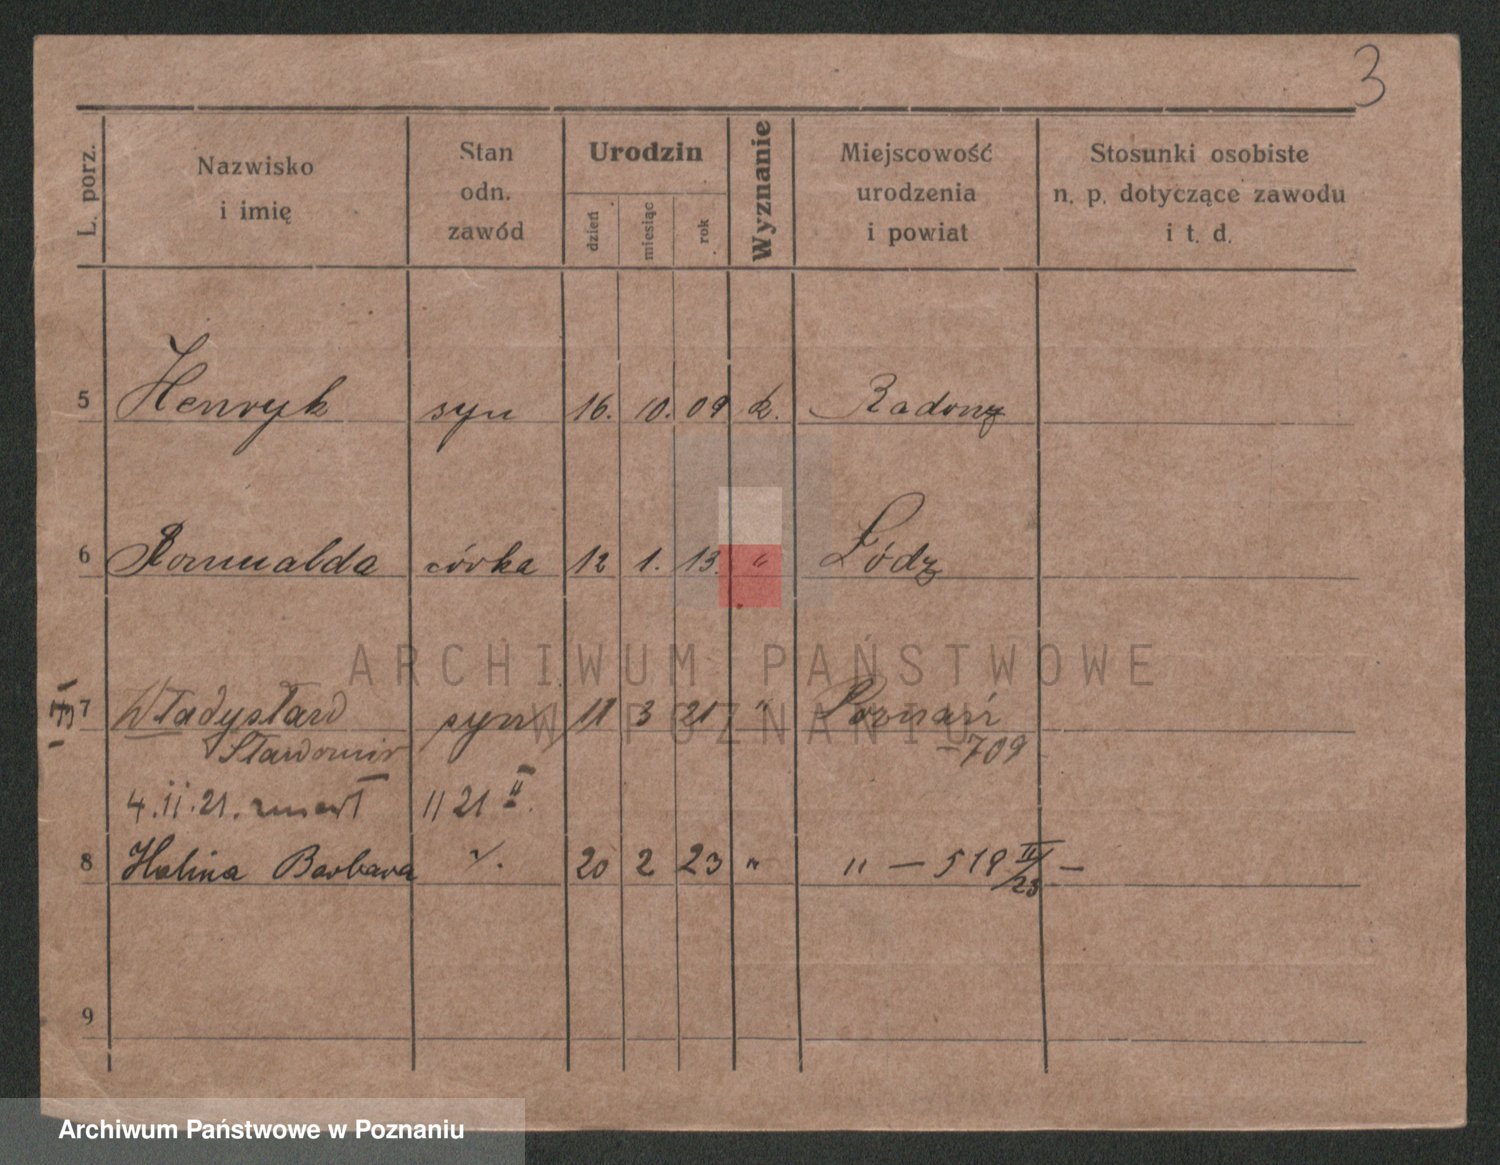 3
L. porz.
Nazwisko
i imię
Stan
odn.
zawód
Urodzin
dzień
miesiąc
rok
Wyznanie
Miejscowość
urodzenia
i powiat
Stosunki osobiste
n. p. dotyczące zawodu
i t. d.
5 Henryk syn 16. 10. 09 k. Radom
6 Romualda córka 12 1. 13. " Łódź
ARCHIWUM PAŃSTWOWE
W POZNANIU
7 Władysław syn 11 3 21 " Poznań
Sławomir – 709
4.11.21. zmarł 11 21 II.
8 Halina Barbara 20 2 23 " " — 518 II/23 —
9
Archiwum Państwowe w Poznaniu